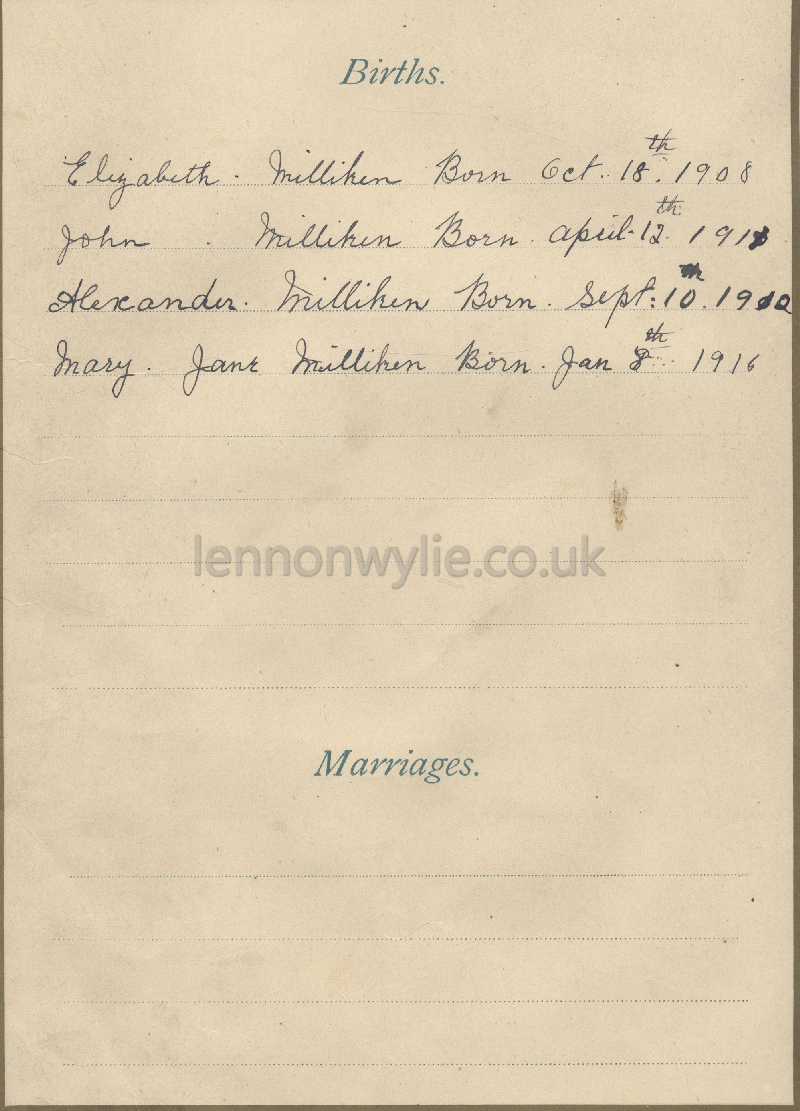 Births.
Elizabeth. Milliken Born Oct. 18th. 1908
John. Milliken Born. April. 12th.
Alexander. Milliken Born. Sept: 10th.
Mary. Jane Milliken Born. Jan 8th 1916
lennonwylie.co.uk
Marriages.